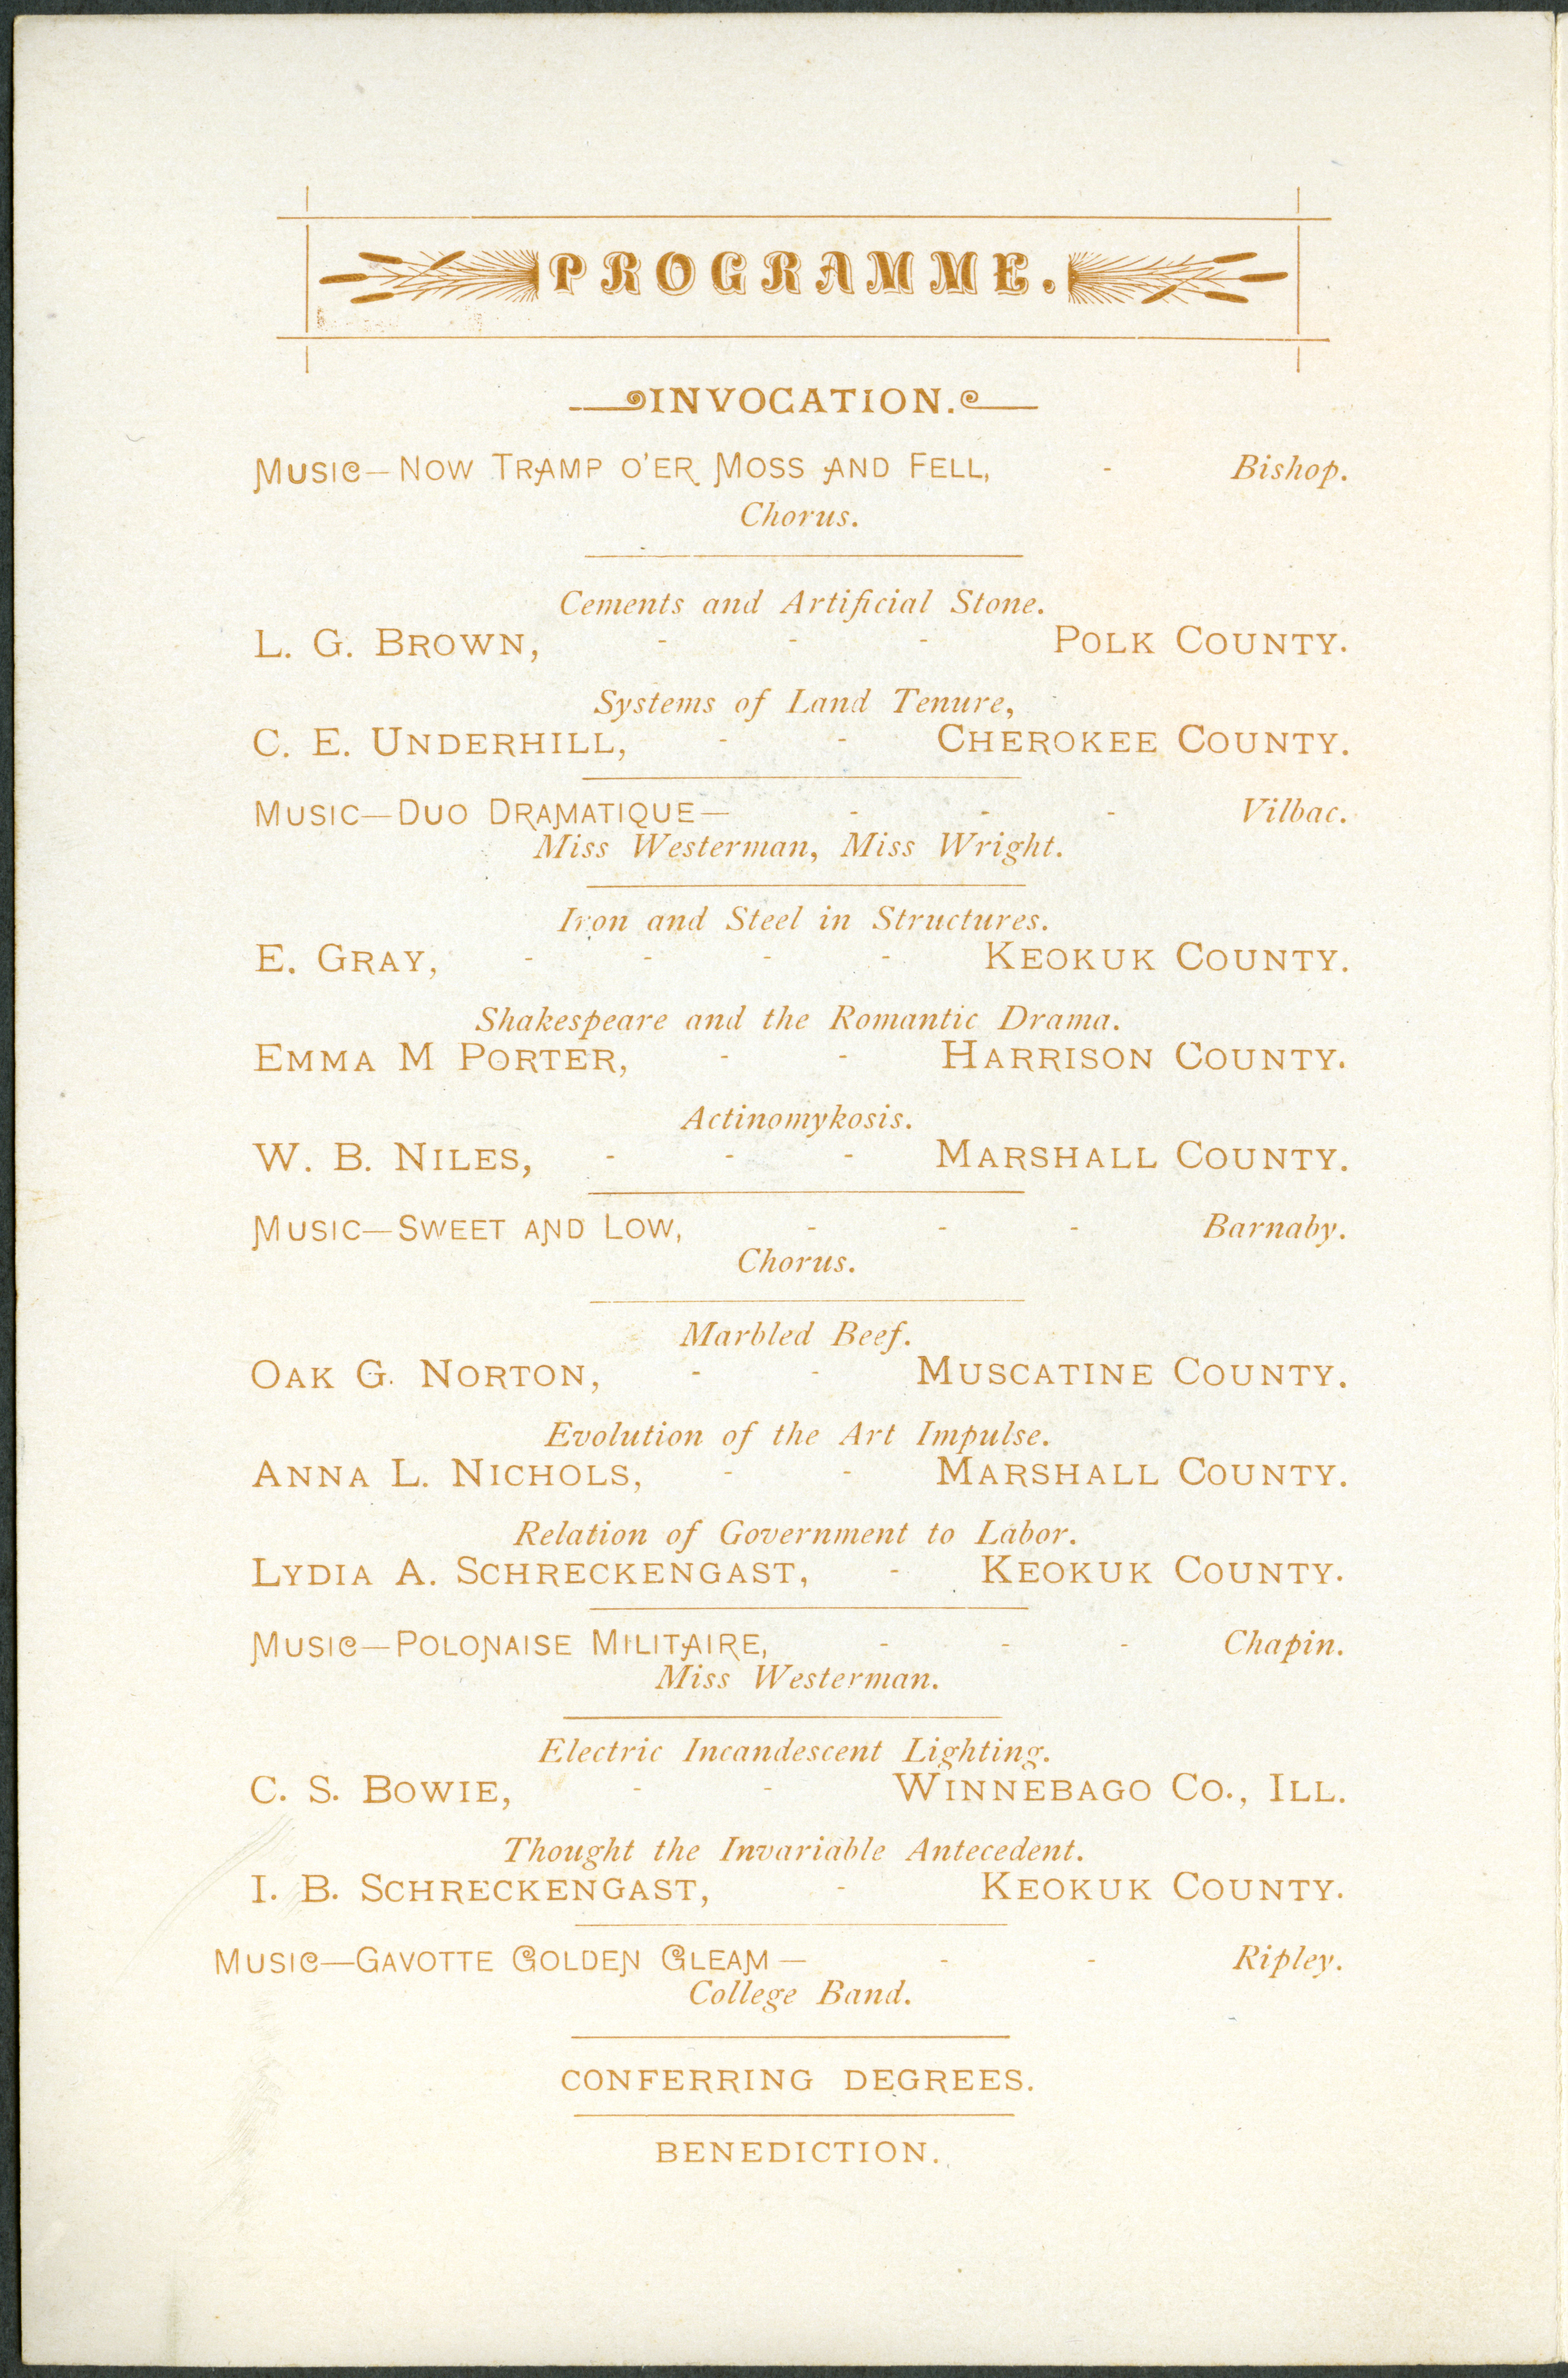 PROGRAMME.
INVOCATION.
MUSIC—NOW TRAMP O'ER MOSS AND FELL, - Bishop.
Chorus.
Cements and Artificial Stone.
L. G. BROWN, - - - POLK COUNTY.
Systems of Land Tenure,
C. E. UNDERHILL, - - CHEROKEE COUNTY.
MUSIC—DUO DRAMATIQUE— - - - Vilbac.
Miss Westerman, Miss Wright.
Iron and Steel in Structures.
E. GRAY, - - - - KEOKUK COUNTY.
Shakespeare and the Romantic Drama.
EMMA M PORTER, - - HARRISON COUNTY.
Actinomykosis.
W. B. NILES, - - - MARSHALL COUNTY.
MUSIC—SWEET AND LOW, - - - Barnaby.
Chorus.
Marbled Beef.
OAK G. NORTON, - - MUSCATINE COUNTY.
Evolution of the Art Impulse.
ANNA L. NICHOLS, - - MARSHALL COUNTY.
Relation of Government to Labor.
LYDIA A. SCHRECKENGAST, - KEOKUK COUNTY.
MUSIC—POLONAISE MILITAIRE, - - - Chapin.
Miss Westerman.
Electric Incandescent Lighting.
C. S. BOWIE, - - WINNEBAGO CO., ILL.
Thought the Invariable Antecedent.
I. B. SCHRECKENGAST, - KEOKUK COUNTY.
MUSIC—GAVOTTE GOLDEN GLEAM— - - Ripley.
College Band.
CONFERRING DEGREES.
BENEDICTION.